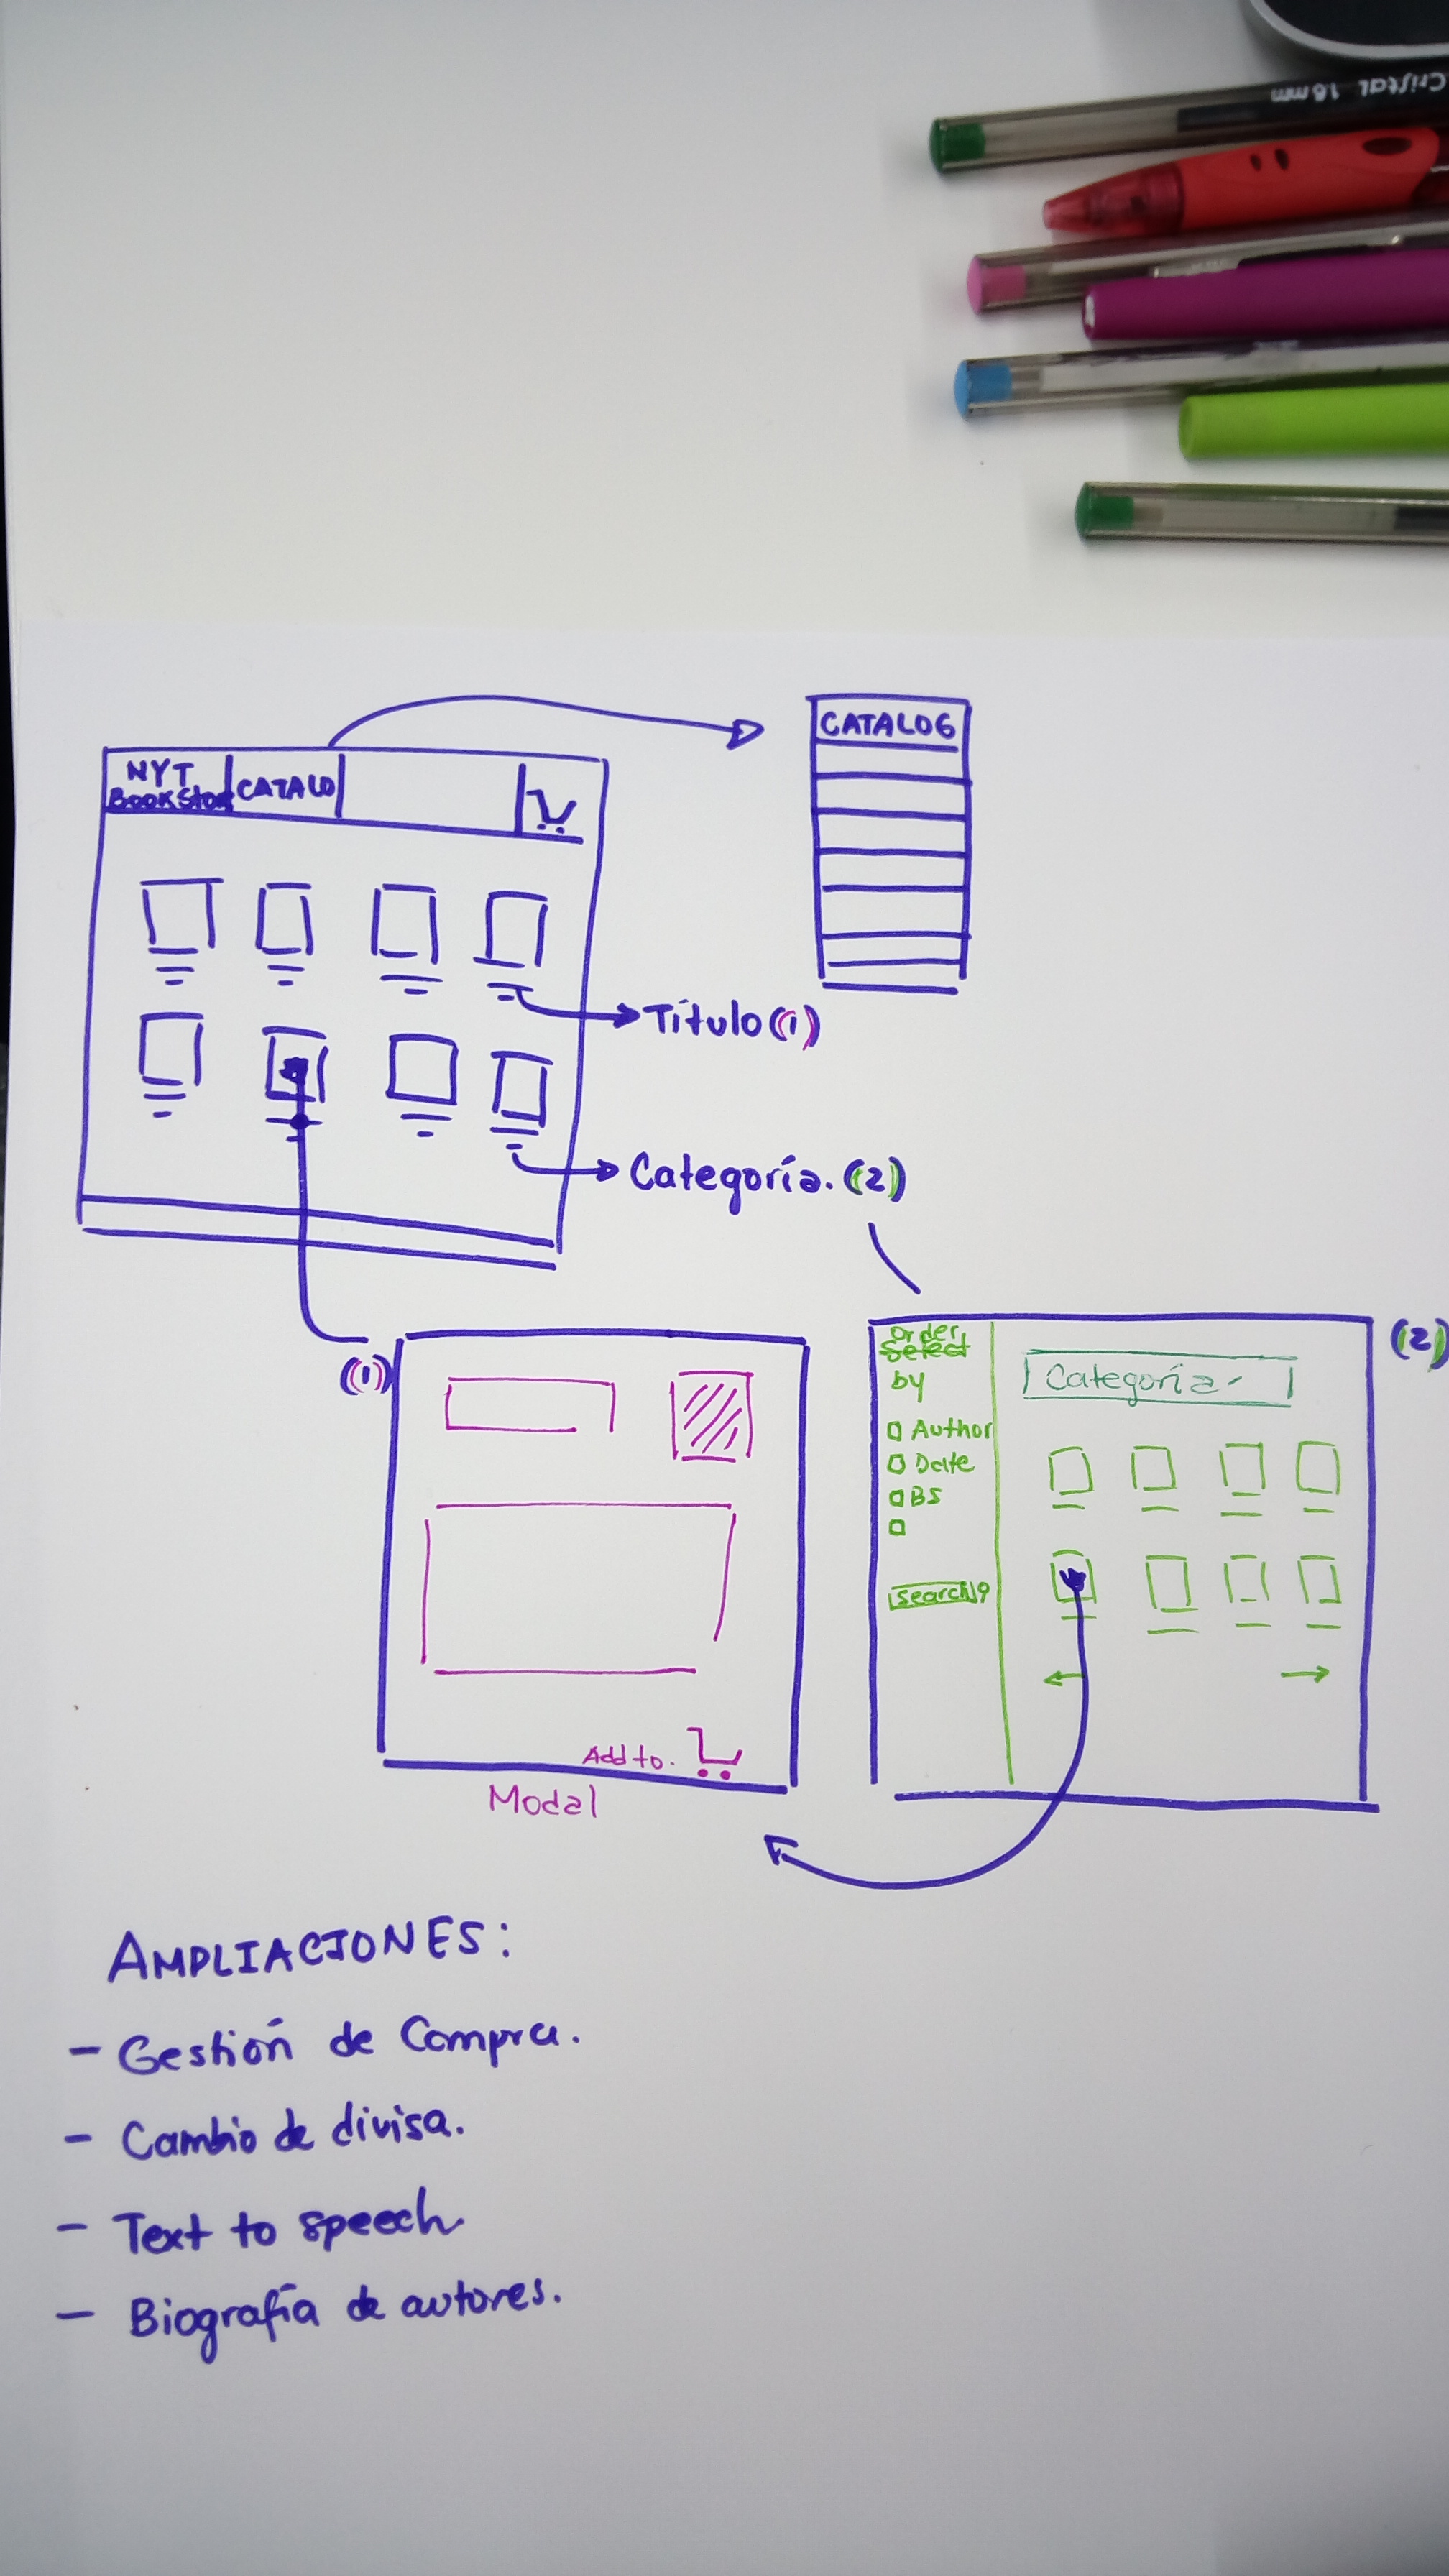 Cristal 1.6mm
CATALOG
NYT
BookStor
CATALO
Título (1)
Categoría. (2)
(1)
(2)
Order
Select
by
Author
Date
BS
Search
Categoría
Add to.
Modal
AMPLIACIONES:
- Gestión de Compra.
- Cambio de divisa.
- Text to speech
- Biografía de autores.